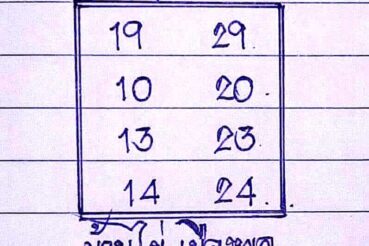 19 29.
10 20.
13 23
14 24.